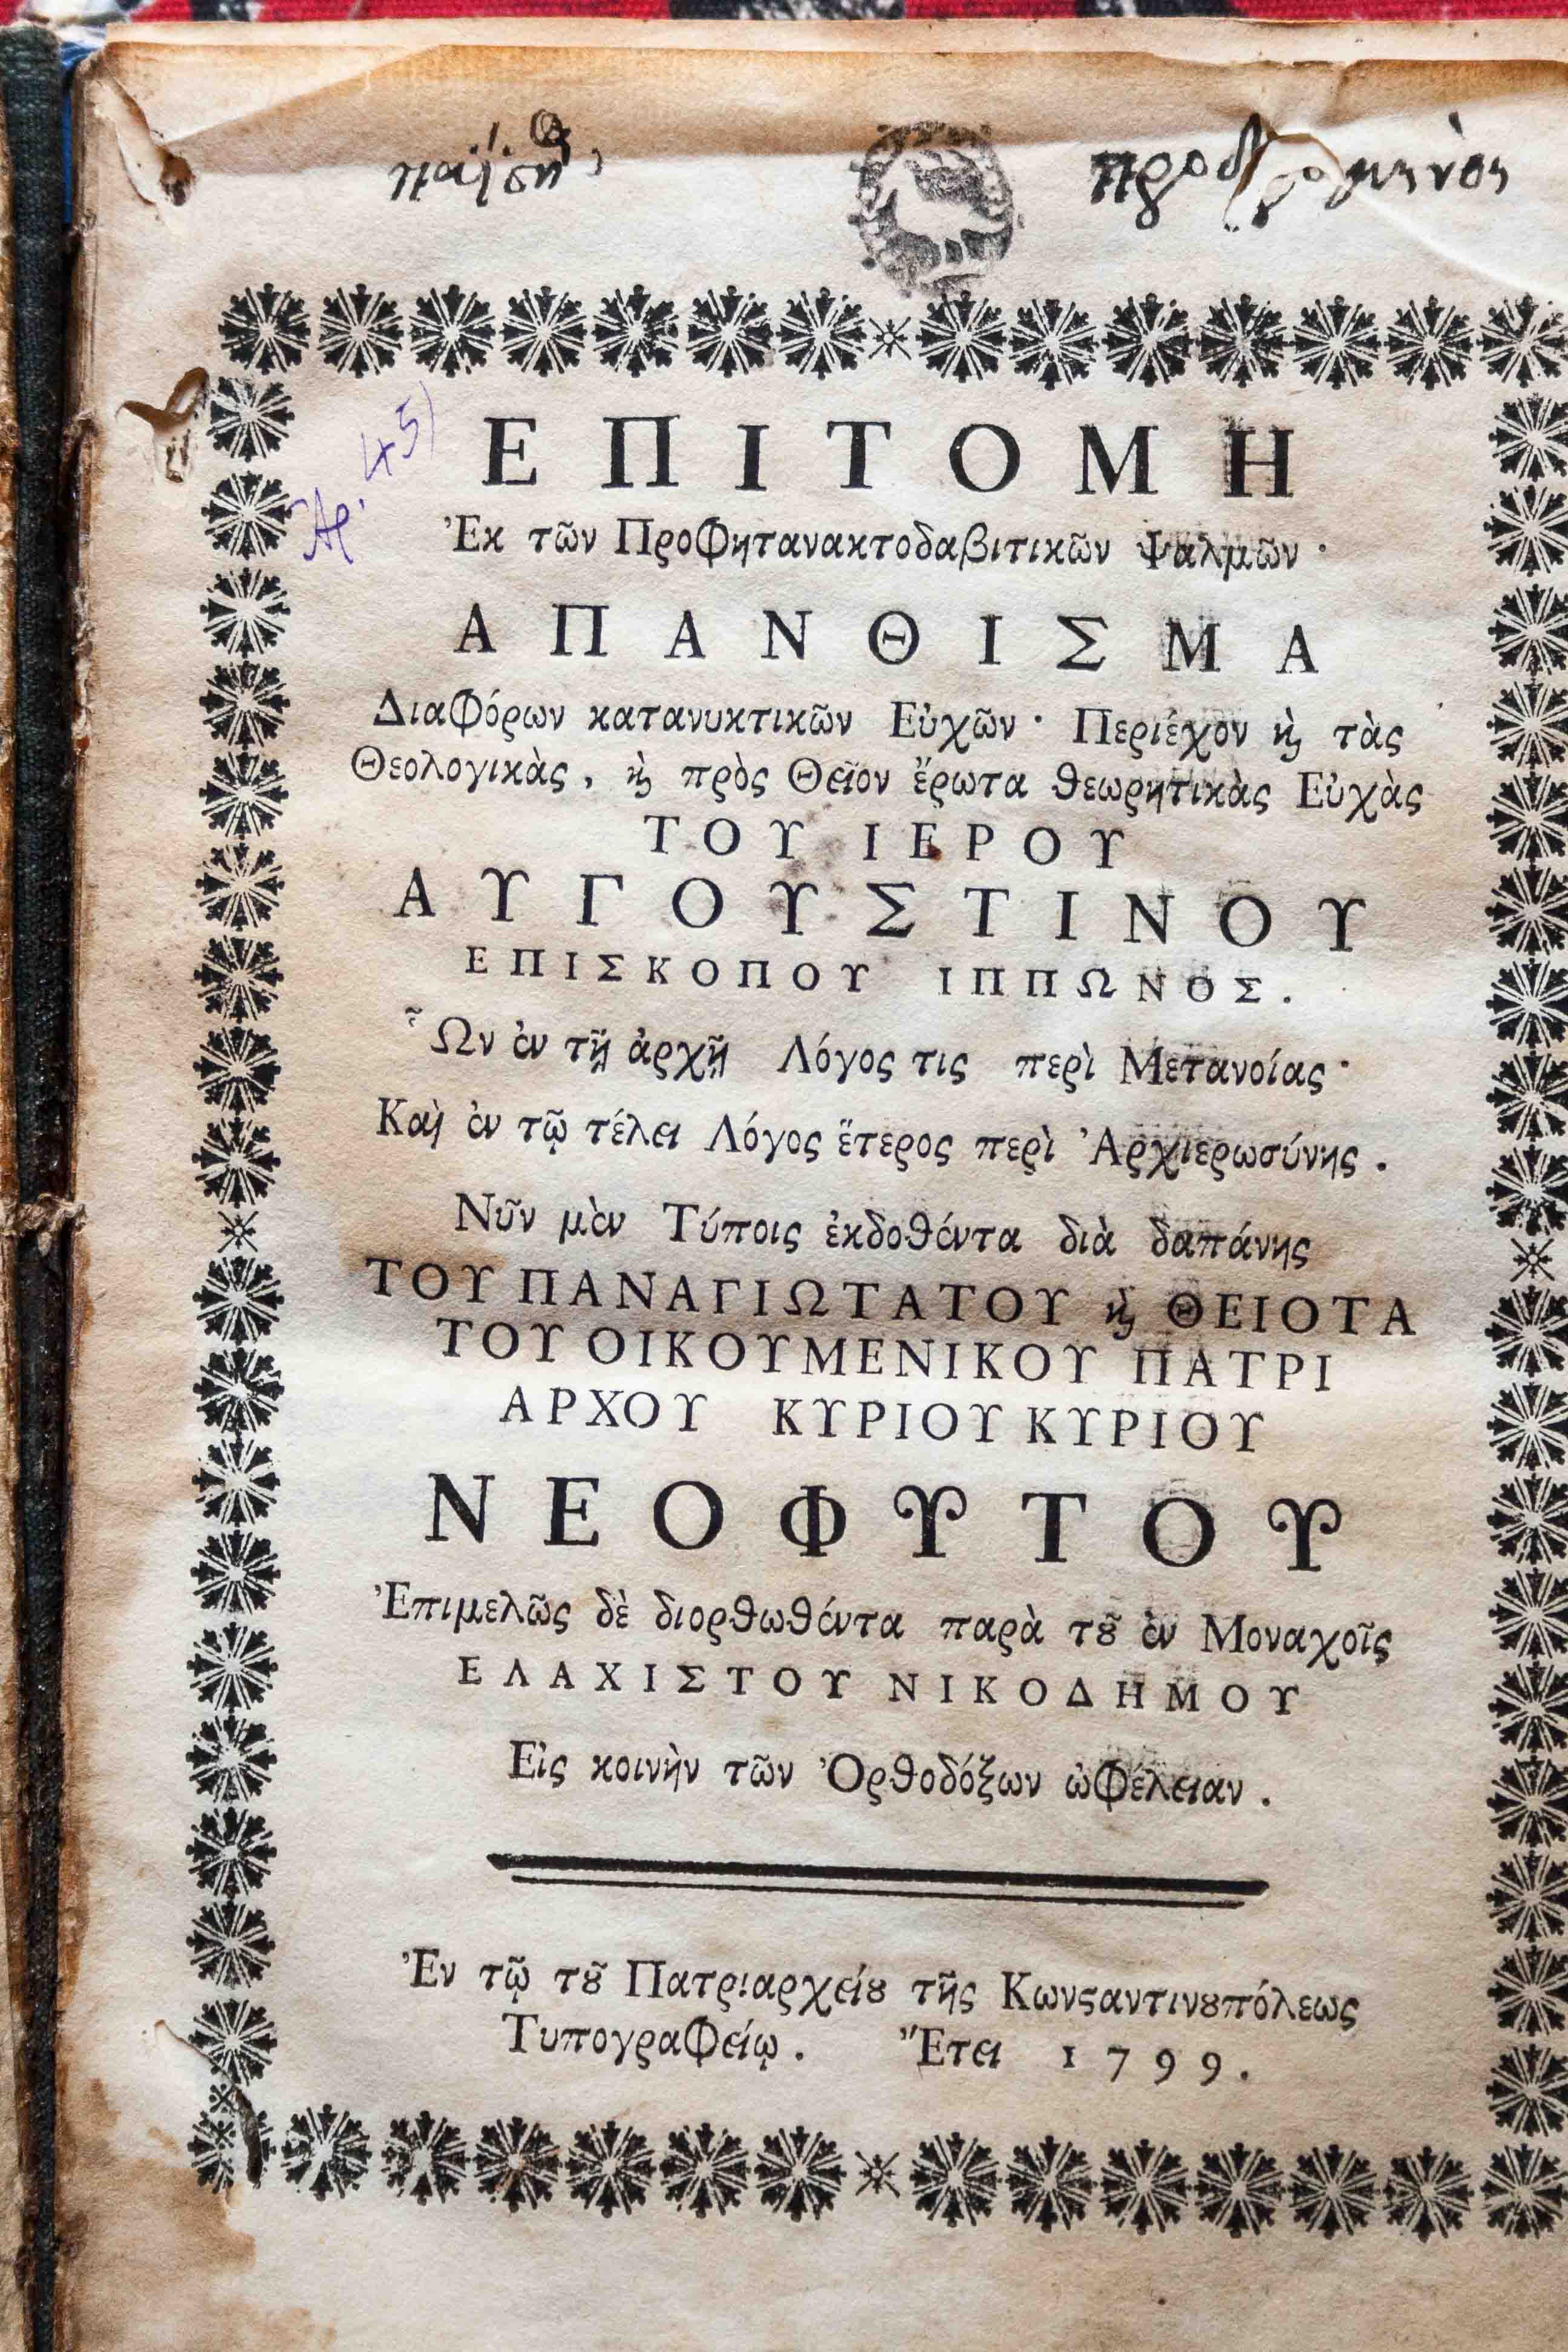 προδρομηνὸς
Ἀρ. 45)
ΕΠΙΤΟΜΗ
Ἐκ τῶν Προφητανακτοδαβιτικῶν Ψαλμῶν·
ΑΠΑΝΘΙΣΜΑ
Διαφόρων κατανυκτικῶν Εὐχῶν· Περιέχον ϗ τὰς
Θεολογικὰς, ϗ πρὸς Θεῖον ἔρωτα θεωρητικὰς Εὐχὰς
ΤΟΥ ΙΕΡΟΥ
ΑΥΓΟΥΣΤΙΝΟΥ
ΕΠΙΣΚΟΠΟΥ ΙΠΠΩΝΟΣ.
Ὧν ἐν τῇ ἀρχῇ Λόγος τις περὶ Μετανοίας·
Καὶ ἐν τῷ τέλει Λόγος ἕτερος περὶ Ἀρχιερωσύνης.
Νῦν μὲν Τύποις ἐκδοθέντα διὰ δαπάνης
ΤΟΥ ΠΑΝΑΓΙΩΤΑΤΟΥ ϗ ΘΕΙΟΤΑ
ΤΟΥ ΟΙΚΟΥΜΕΝΙΚΟΥ ΠΑΤΡΙ
ΑΡΧΟΥ ΚΥΡΙΟΥ ΚΥΡΙΟΥ
ΝΕΟΦΥΤΟΥ
Ἐπιμελῶς δὲ διορθωθέντα παρὰ τȣ͂ ἐν Μοναχοῖς
ΕΛΑΧΙΣΤΟΥ ΝΙΚΟΔΗΜΟΥ
Εἰς κοινὴν τῶν Ὀρθοδόξων ὠφέλειαν.
Ἐν τῷ τȣ͂ Πατριαρχείȣ τῆς Κωνϛαντινȣπόλεως
Τυπογραφείῳ. Ἔτει 1799.